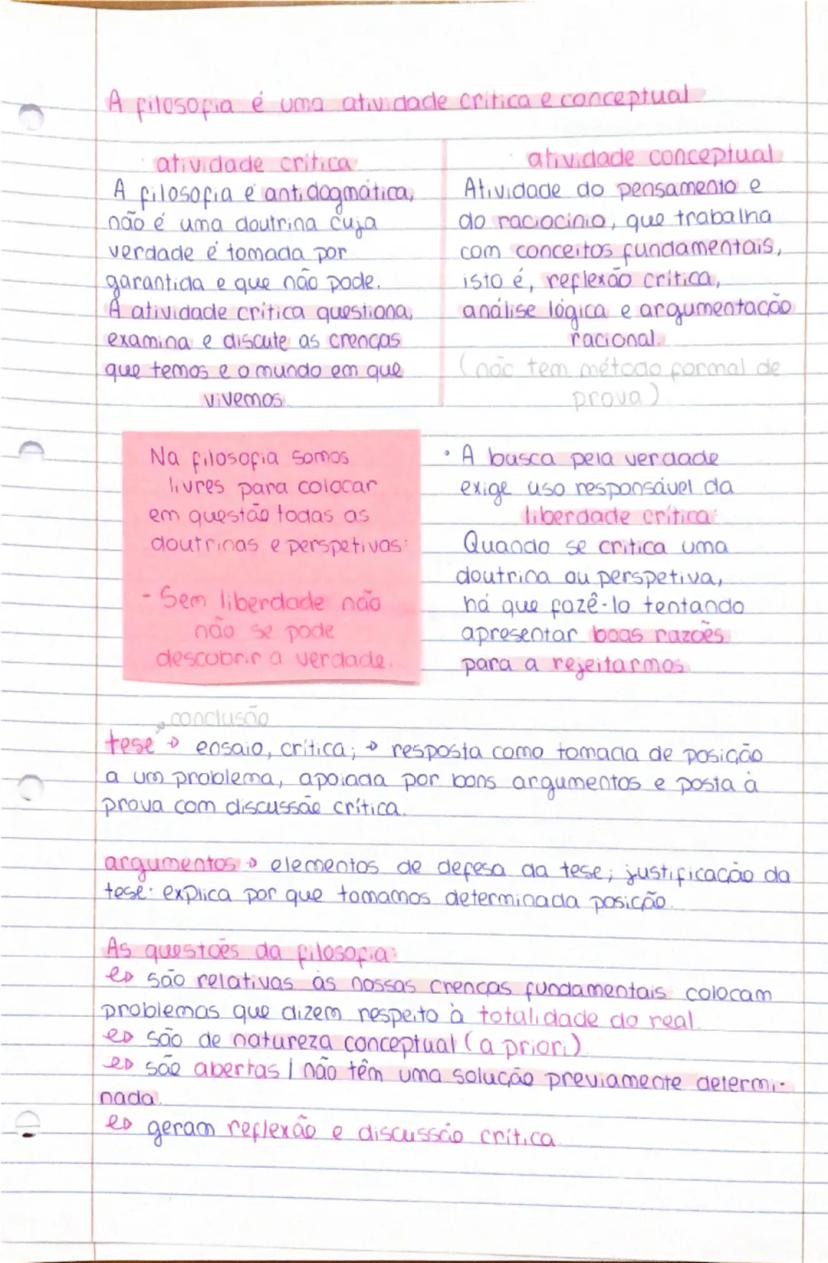 A filosofia é uma atividade crítica e conceptual
atividade crítica
A filosofia é antidogmática,
não é uma doutrina cuja
verdade é tomada por
garantida e que não pode.
A atividade crítica questiona,
examina e discute as crenças
que temos e o mundo em que
vivemos.
atividade conceptual
Atividade do pensamento e
do raciocínio, que trabalha
com conceitos fundamentais,
isto é, reflexão crítica,
análise lógica e argumentação
racional.
(não tem método formal de
prova)
Na filosofia somos
livres para colocar
em questão todas as
doutrinas e perspetivas:
- Sem liberdade não
não se pode
descobrir a verdade.
• A busca pela verdade
exige uso responsável da
liberdade crítica:
Quando se critica uma
doutrina ou perspetiva,
há que fazê-lo tentando
apresentar boas razões
para a rejeitarmos.
conclusão
tese → ensaio, crítica; → resposta como tomada de posição
a um problema, apoiada por bons argumentos e posta à
prova com discussão crítica.
argumentos → elementos de defesa da tese; justificação da
tese: explica por que tomamos determinada posição.
As questões da filosofia:
↳ são relativas às nossas crenças fundamentais colocam
problemas que dizem respeito à totalidade do real.
↳ são de natureza conceptual (a priori)
↳ são abertas / não têm uma solução previamente determi-
nada.
↳ geram reflexão e discussão crítica.